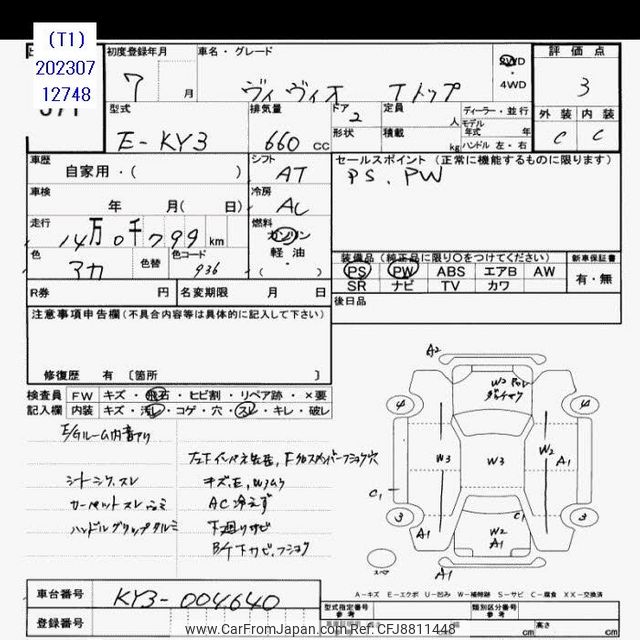 (T1)
202307
12748
初度登録年月
7 月
車名・グレード
ヴィヴィオ Tトップ
2WD
・4WD
評価点
3
型式
E-KY3
排気量
660 cc
ドア
2
形状
定員
人
積載
kg
ディーラー・並行
モデル
年式 年
ハンドル 左・右
外装 内装
C C
車歴
自家用・( )
シフト
AT
セールスポイント (正常に機能するものに限ります)
PS、PW
車検
年 月( 日)
冷房
AC
走行
14万0千799km
燃料
ガソリン
軽油
( ・ )
色
アカ
色替
色コード
936
装備品 (純正品に限り○をつけてください)
PS PW ABS エアB AW
SR ナビ TV カワ
新車保証書
有・無
R券 円
名変期限 月 日
後日品
注意事項申告欄(不具合内容等は具体的に記入して下さい)
修復歴 有 〔箇所 〕
検査員
記入欄
FW キズ・飛石・ヒビ割・リペア跡・×要
内装 キズ・汚レ・コゲ・穴・スレ・キレ・破レ
E/Gルーム内音アリ
シートシワ、スレ
カーペットスレ
ハンドルグリップダルミ
キズ、E、Wムラ
AC冷えず
下廻リサビ
A2
W2
4 4
W3 W3 W2
A1
C1
3 3
A1 C1
W2
A1
A1
スペア
A-キズ E-エクボ U-凹み W-補修跡 S-サビ C-腐食 XX-交換済
車台番号
KY3-004640
登録番号
型式指定番号
参考
類別区分番号
参考
長さ cm 幅 cm 高さ cm
www.CarFromJapan.com Ref:CFJ8811448